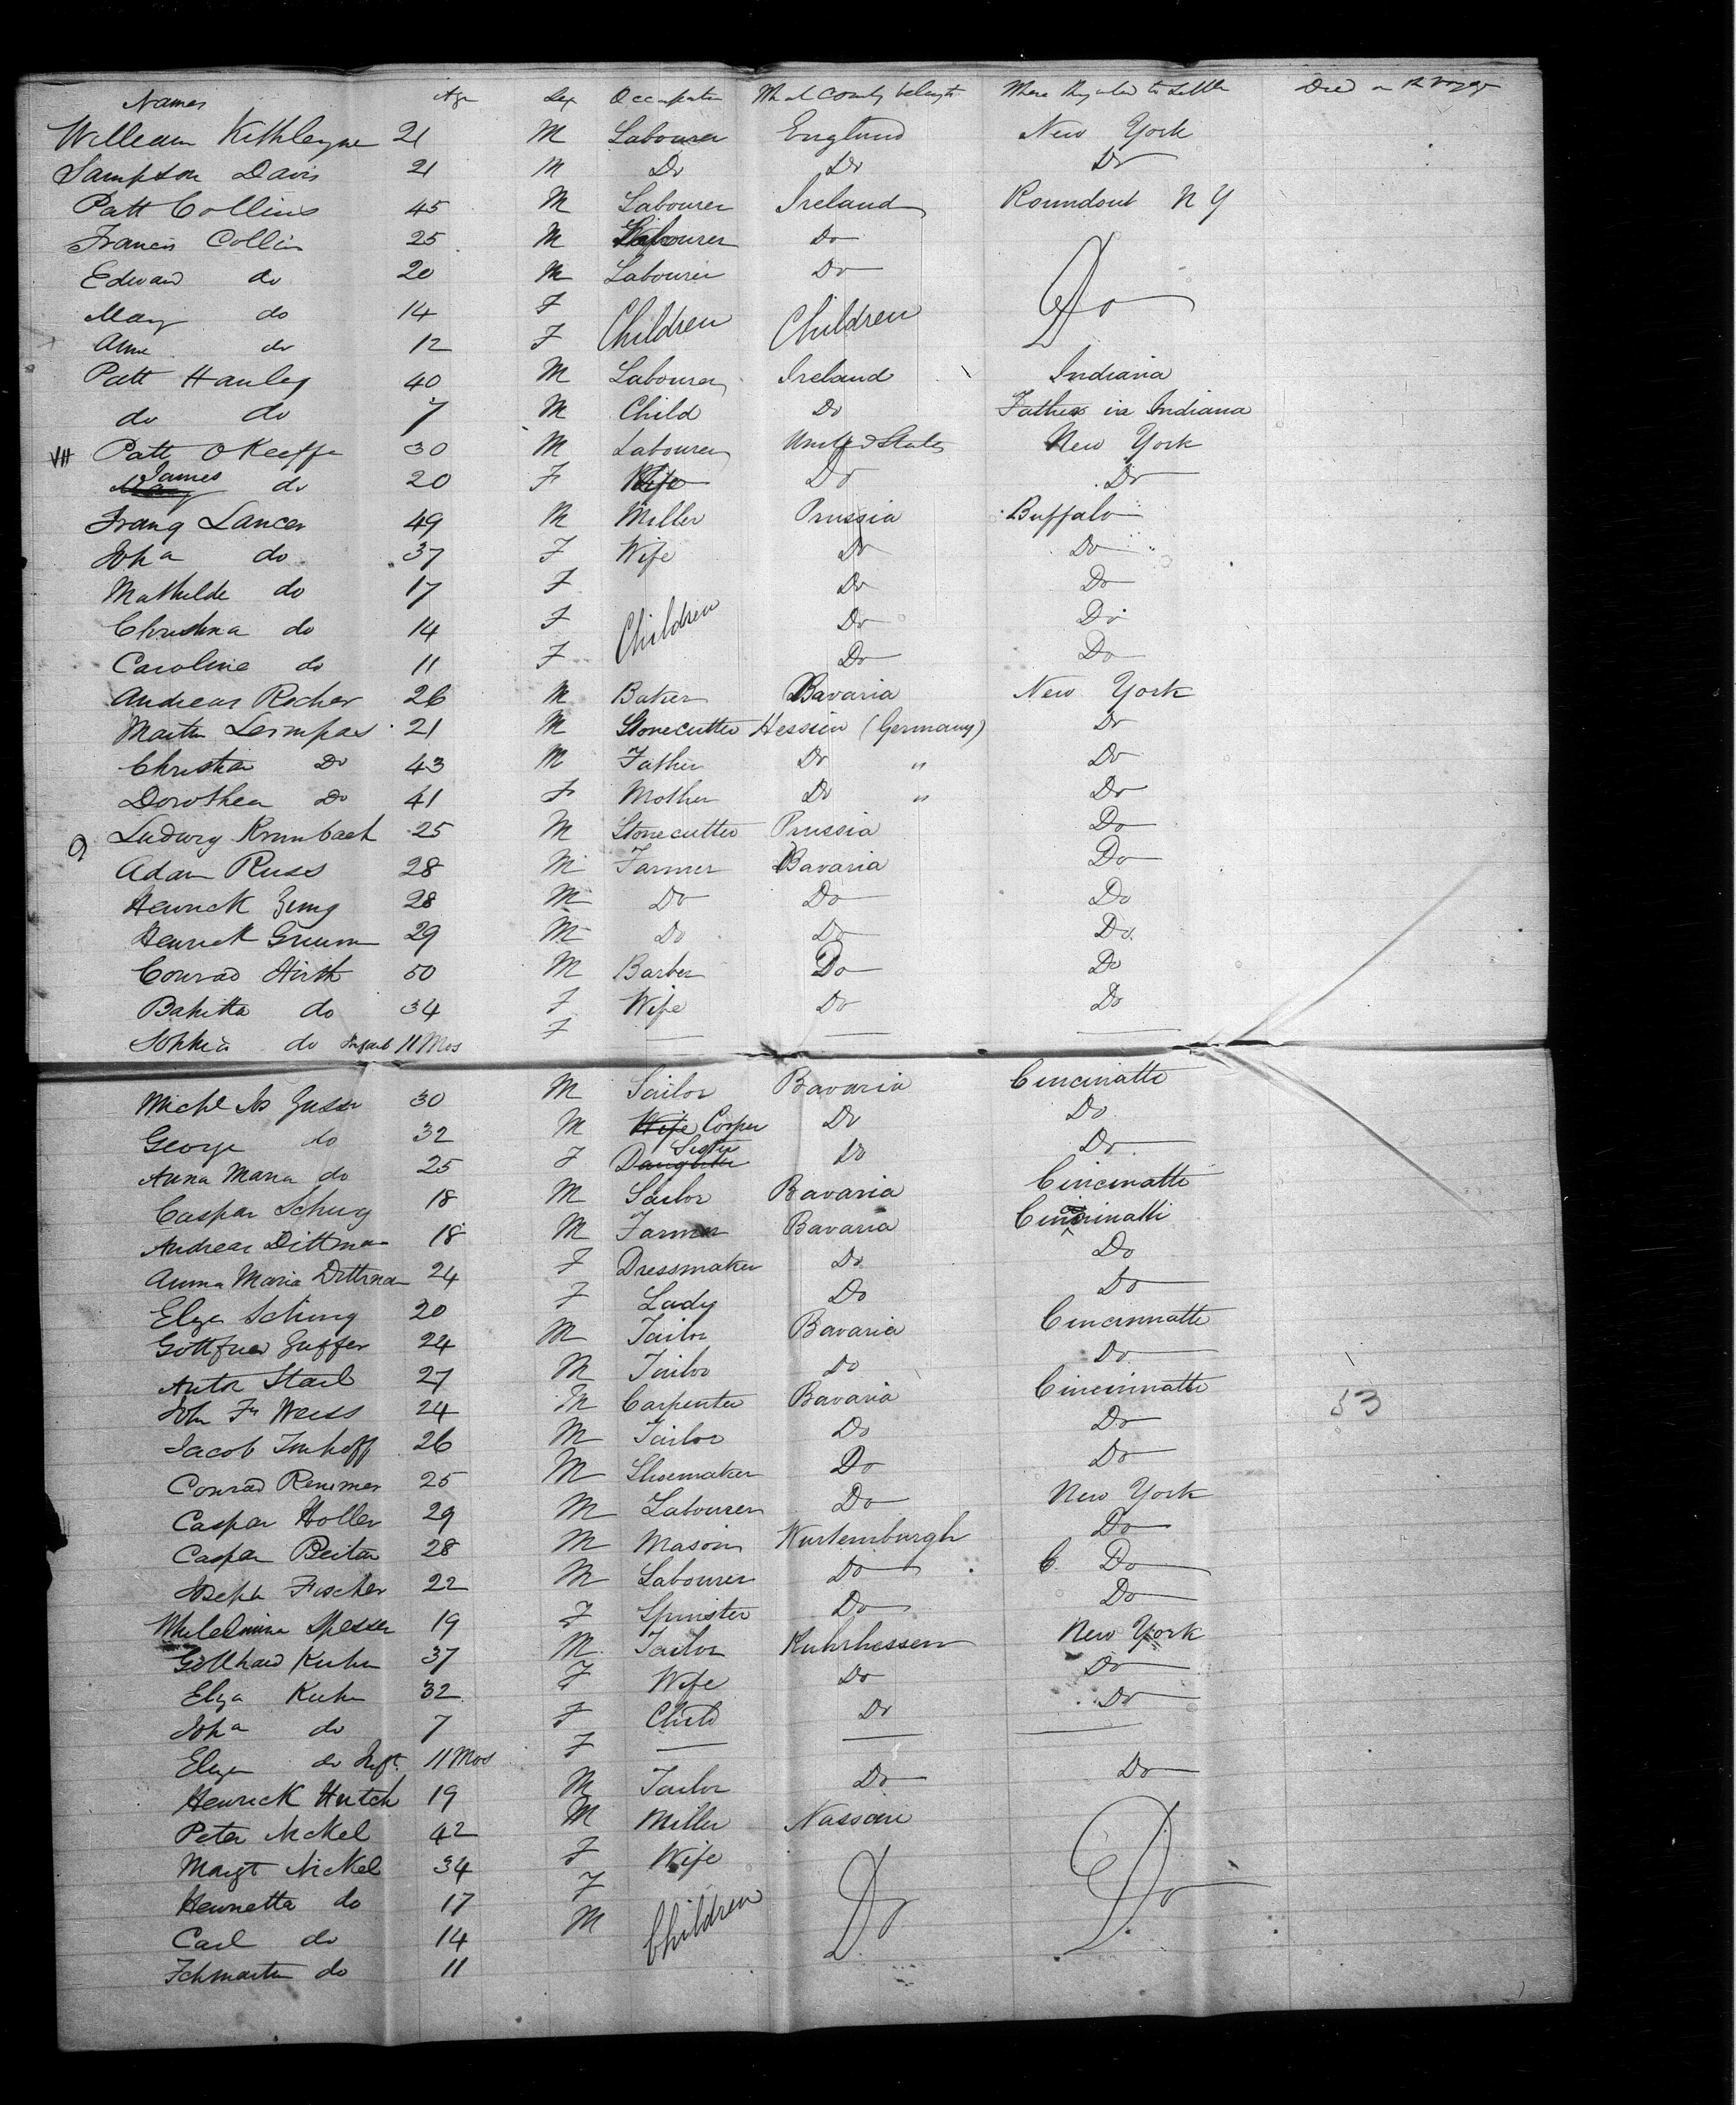 Names Age Sex Occupation What County belong to Where they intend to Settle Died on the Voyage
William Kithleyne 21 M Labourer England New York
Sampson Davis 21 M Do Do Do
Patt Collins 45 M Labourer Ireland Roundout N Y
Francis Collin 25 M Labourer Do
Edward do 20 M Labourer Do Do
Mary do 14 F Children Children
Anne do 12 F
Patt Hanley 40 M Labourer Ireland Indiana
do do 7 M Child Do Father in Indiana
Patt OKeeffe 30 M Labourer United States New York
James do 20 F Wife Do Do
Franz Lancer 49 M Miller Prussia Buffalo
Joha do 37 F Wife Do Do
Mathilde do 17 F Do Do
Christina do 14 F Children Do Do
Caroline do 11 F Do Do
Andreas Rocher 26 M Baker Bavaria New York
Martin Leimpax 21 M Stonecutter Hessien (Germany) Do
Christian Do 43 M Father Do " Do
Dorothea Do 41 F Mother Do " Do
Ludwig Krumbach 25 M Stonecutter Prussia Do
Adam Russ 28 M Farmer Bavaria Do
Henrick Zung 28 M Do Do Do
Henrick Grumm 29 M Do Do Do
Conrad Hirth 50 M Barber Do Do
Babitta do 34 F Wife Do Do
Sophia do Infant 11 Mos F
Michl Jos Zusser 30 M Tailor Bavaria Cincinatti
George do 32 M Wife Cooper Do Do
Anna Maria do 25 F Daughter Sister Do Do
Caspar Schug 18 M Tailor Bavaria Cincinatti
Andreas Dittman 18 M Farmer Bavaria Cincinatti
Anna Maria Dittman 24 F Dressmaker Do Do
Eliza Schung 20 F Lady Do Do
Gottfried Zuffer 24 M Tailor Bavaria Cincinnatti
Anton Starl 27 M Tailor Do Do
John Fr Weiss 24 M Carpenter Bavaria Cincinnatti 53
Jacob Imhoff 26 M Tailor Do Do
Conrad Remmer 25 M Shoemaker Do Do
Caspar Holler 29 M Labourer Do New York
Caspar Beiter 28 M Mason Wurtemburgh Do
Joseph Fischer 22 M Labourer Do C Do
Whilelmina Spesser 19 F Spinster Do Do
Gotthard Kuhn 37 M Tailor Kuhrhessen New York
Eliza Kuhn 32 F Wife Do Do
Joha do 7 F Child Do Do
Eliza do Inft 11 Mos F
Henrick Hutch 19 M Tailor Do Do
Peter Nickel 42 M Miller Nassau
Margt Nickel 34 F Wife
Henrietta do 17 F Children Do Do
Carl do 14 M
do 11